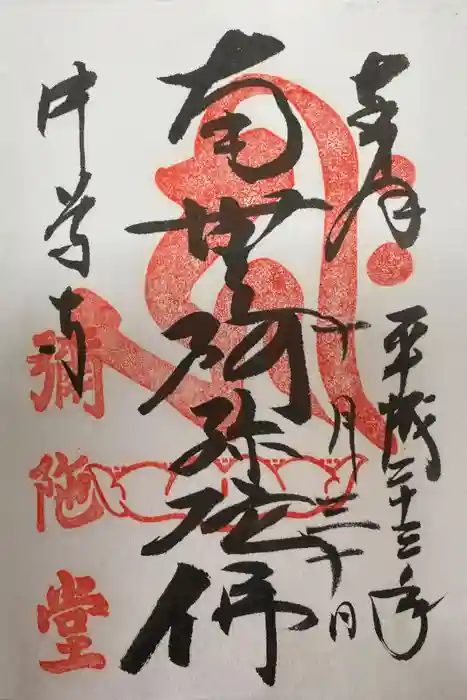 奉拝
平成二十三年
十月二十日
南無阿弥陀佛
中尊寺
彌陀堂